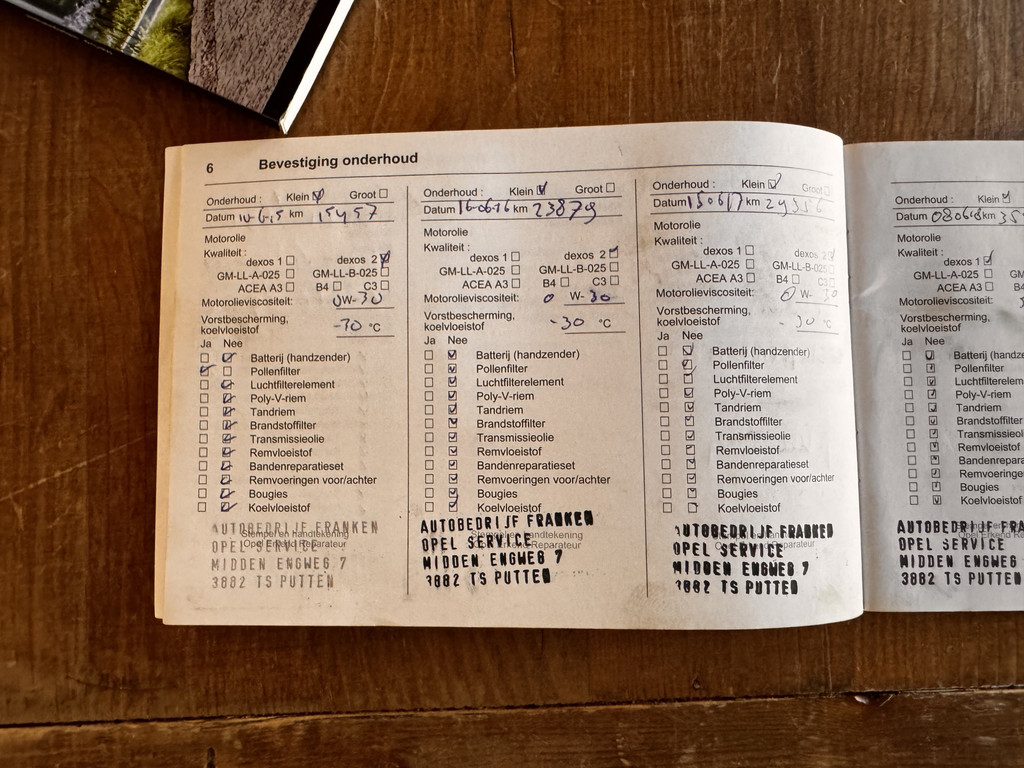 6 Bevestiging onderhoud
Onderhoud : Klein Groot
Datum km 15457
Motorolie
Kwaliteit :
dexos 1 dexos 2
GM-LL-A-025 GM-LL-B-025
ACEA A3 B4 C3
Motorolieviscositeit: 0W-30
Vorstbescherming,
koelvloeistof °C
Ja Nee
Batterij (handzender)
Pollenfilter
Luchtfilterelement
Poly-V-riem
Tandriem
Brandstoffilter
Transmissieolie
Remvloeistof
Bandenreparatieset
Remvoeringen voor/achter
Bougies
Koelvloeistof
Stempel en handtekening
Opel Erkend Reparateur
AUTOBEDRIJF FRANKEN
OPEL SERVICE
MIDDEN ENGWEG 7
3882 TS PUTTEN
Onderhoud : Klein Groot
Datum 16-06-16 km 23879
Motorolie
Kwaliteit :
dexos 1 dexos 2
GM-LL-A-025 GM-LL-B-025
ACEA A3 B4 C3
Motorolieviscositeit: 0 W-30
Vorstbescherming,
koelvloeistof -30 °C
Ja Nee
Batterij (handzender)
Pollenfilter
Luchtfilterelement
Poly-V-riem
Tandriem
Brandstoffilter
Transmissieolie
Remvloeistof
Bandenreparatieset
Remvoeringen voor/achter
Bougies
Koelvloeistof
Stempel en handtekening
Opel Erkend Reparateur
AUTOBEDRIJF FRANKEN
OPEL SERVICE
MIDDEN ENGWEG 7
3882 TS PUTTEN
Onderhoud : Klein Groot
Datum 150617 km
Motorolie
Kwaliteit :
dexos 1 dexos 2
GM-LL-A-025 GM-LL-B-025
ACEA A3 B4 C3
Motorolieviscositeit: 0 W-30
Vorstbescherming,
koelvloeistof -30 °C
Ja Nee
Batterij (handzender)
Pollenfilter
Luchtfilterelement
Poly-V-riem
Tandriem
Brandstoffilter
Transmissieolie
Remvloeistof
Bandenreparatieset
Remvoeringen voor/achter
Bougies
Koelvloeistof
AUTOBEDRIJF FRANKEN
OPEL SERVICE
MIDDEN ENGWEG 7
3882 TS PUTTEN
Onderhoud : Klein
Datum 080618 km
Motorolie
Kwaliteit :
dexos 1
GM-LL-A-025
ACEA A3
Motorolieviscositeit:
Vorstbescherming,
koelvloeistof
Ja Nee
Batterij (handze
Pollenfilter
Luchtfilterelem
Poly-V-riem
Tandriem
Brandstoffilter
Transmissieol
Remvloeistof
Bandenrepara
Remvoeringen
Bougies
Koelvloeistof
AUTOBEDRIJF FRA
OPEL SERVICE
MIDDEN ENGWEG
3882 TS PUTTEN